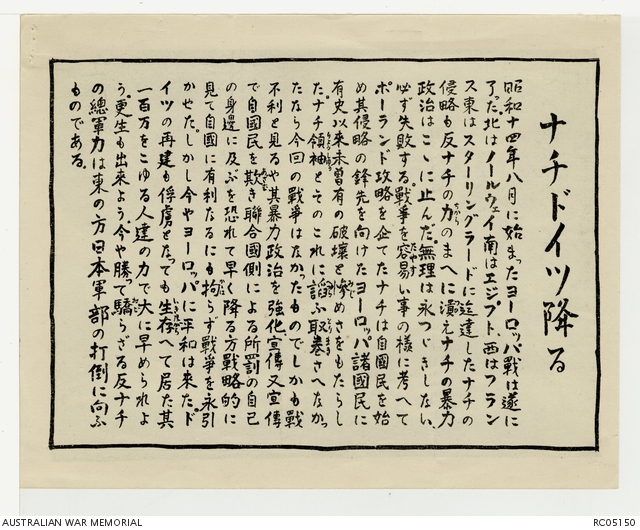 ナチドイツ降る
昭和十四年八月に始まったヨーロッパ戦は遂に
了った。北はノールウェイ南はエジプト、西はフラン
ス東はスターリングラードに迄達したナチの
侵略も反ナチの力のまへに潰えナチの暴力
政治はこゝに止んだ。無理は永つゞきしない、
必ず失敗する。戦争を容易い事の様に考へて
ポーランド攻略を企てたナチは自國民を始
め其侵略の鋒先を向けたヨーロッパ諸國民に
有史以来未曽有の破壊と惨めさをもたらし
た。ナチ領袖とそのこれに諂ふ取巻さへなかっ
たなら今回の戦争はなかったものでしかも戦
不利と見るや其暴力政治を強化、宣傳又宣傳
で自國民を欺き聯合國側による所罰の自己
の身邊に及ぶを恐れて早く降る方戦略的に
見て自國に有利なるにも拘らず戦争を永引
かせた。しかし今やヨーロッパに平和は来た。ド
イツの再建も俘虜となっても生存へて居た其
一百万をこゆる人達の力で大に早められよ
う。更生も出来よう。今や勝って驕らざる反ナチ
の總軍力は東の方日本軍部の打倒に向ふ
ものである。
AUSTRALIAN WAR MEMORIAL
RC05150